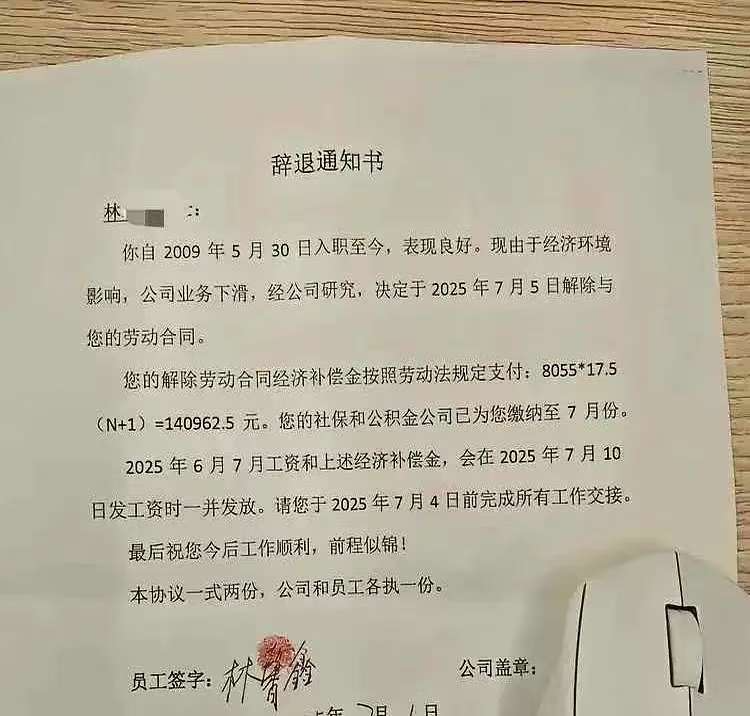 辞退通知书
林
你自 2009 年 5 月 30 日入职至今，表现良好。现由于经济环境
影响，公司业务下滑，经公司研究，决定于 2025 年 7 月 5 日解除与
您的劳动合同。
您的解除劳动合同经济补偿金按照劳动法规定支付：8055*17.5
（N+1）=140962.5 元。您的社保和公积金公司已为您缴纳至 7 月份。
2025 年 6 月 7 月工资和上述经济补偿金，会在 2025 年 7 月 10
日发工资时一并发放。请您于 2025 年 7 月 4 日前完成所有工作交接。
最后祝您今后工作顺利，前程似锦！
本协议一式两份，公司和员工各执一份。
员工签字：林 鑫 公司盖章：
年 7月 1日